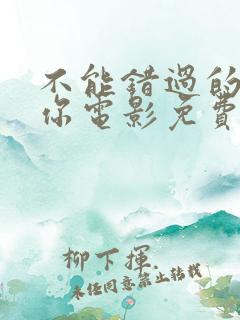 不能錯過的
你電影免費
柳下揮.
未经同意禁止转载